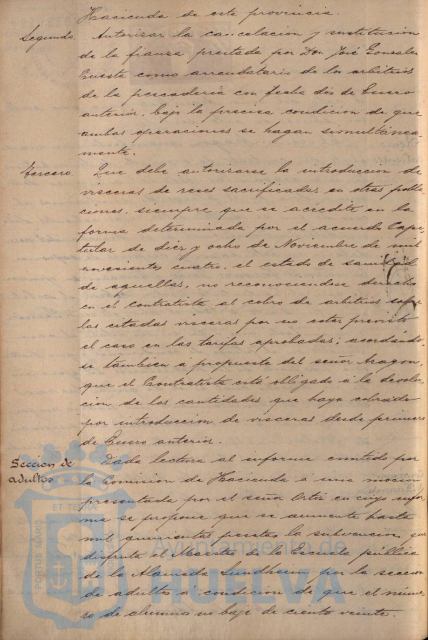 Hacienda de esta provincia.
Segundo. Autorizar la cancelacion y sustitucion
de la fianza prestada por Don José Gonzalez
Cuesta como arrendatario de los arbitrios
de la pescaderia con fecha dos de Enero
anterior, bajo la precisa condicion de que
ambas operaciones se hagan simultanea-
mente.
Tercero. Que debe autorizarse la introduccion de
visceras de reses sacrificadas en otras pobla-
ciones, siempre que se acredite en la
forma determinada por el acuerdo Capi-
tular de diez y ocho de Noviembre de mil
novecientos cuatro, el estado de sanidad
de aquellas, no reconociendose derecho
en el contratista al cobro de arbitrios sobre
las citadas visceras por no estar previsto
el caso en las tarifas aprobadas; acordando-
se tambien á propuesta del señor Aragon,
que el Contratista está obligado á la devolu-
cion de las cantidades que haya cobrado
por introduccion de visceras desde primero
de Enero anterior.
Seccion de adultos
Dada lectura al informe emitido por
la Comision de Hacienda á una mocion
presentada por el señor Ortiz en cuyo infor-
me se propone que se aumente hasta
mil quinientas pesetas la subvencion que
disfruta el Maestro de la Escuela pública
de la Alameda Sundheim por la seccion
de adultos á condicion de que el núme-
ro de alumnos no baje de ciento veinte.
Ayuntamiento de
HUELVA